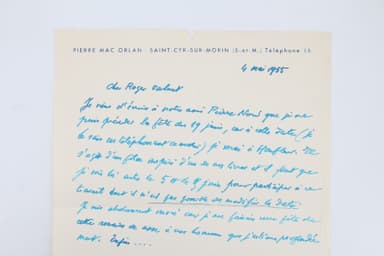 PIERRE MAC ORLAN - SAINT-CYR-SUR-MORIN (S.-et-M.) Téléphone 15
4 mai 1955
cher Roger Valuet
Je viens d'écrire à notre ami Pierre que je ne
puis présider la fête du 19 juin, car à cette date (je
le sais un téléphonement ce matin) je serai à Honfleur. Il
s'agit d'un film inspiré d'un de mes livres et il faut que
je sois là entre le 5 et le 8 juin pour participer à ce
travail dont il n'est pas possible de modifier la date.
Je suis absolument navré car je me faisais une fête de
cette réunion de amis à nos hommes que j'estime profondé
ment. Enfin ....